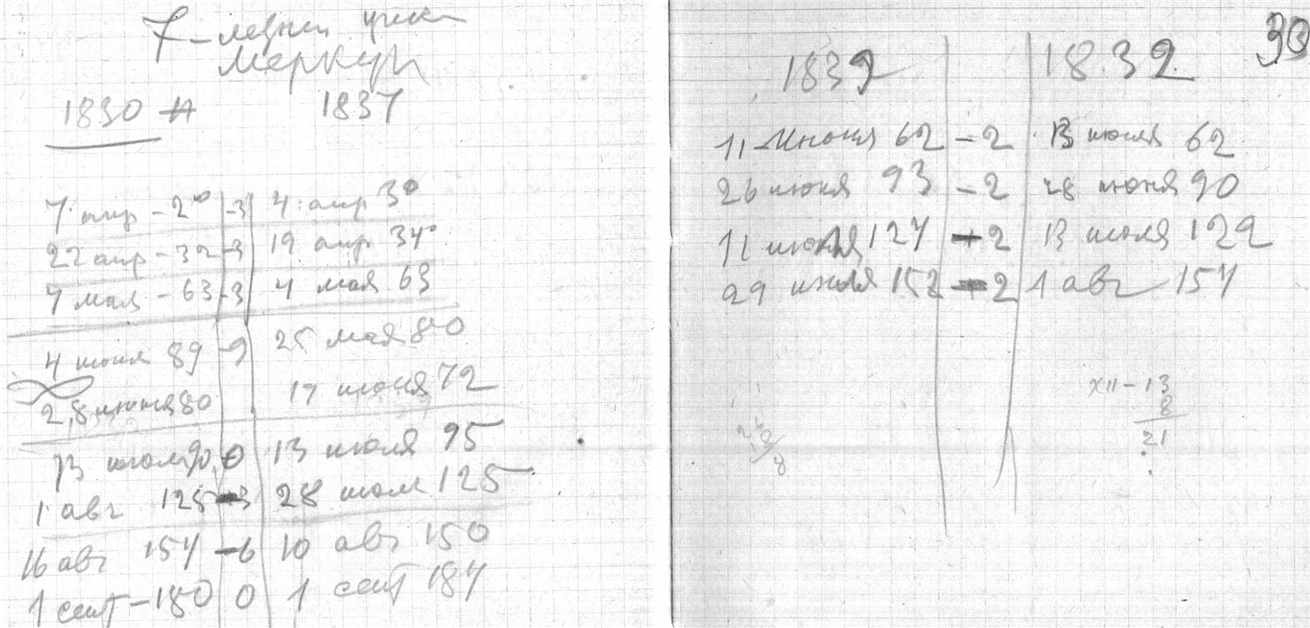 7-летний цикл
Меркурий
1830 н 1837
7 апр - 2° -3 4 апр 3°
22 апр - 32 -3 19 апр 34°
7 мая - 63 -3 4 мая 63
4 июня 89 -9 25 мая 80
28 июня 80 17 июня 72
13 июля 90 0 13 июля 95
1 авг 125 -3 28 июля 125
16 авг 154 -6 10 авг 150
1 сент - 180 0 1 сент 184
30
1839 1832
11 июня 62 -2 13 июня 62
26 июня 93 -2 28 июня 90
11 июля 124 -2 13 июля 122
29 июля 152 -2 1 авг 154
XII - 13
8
21